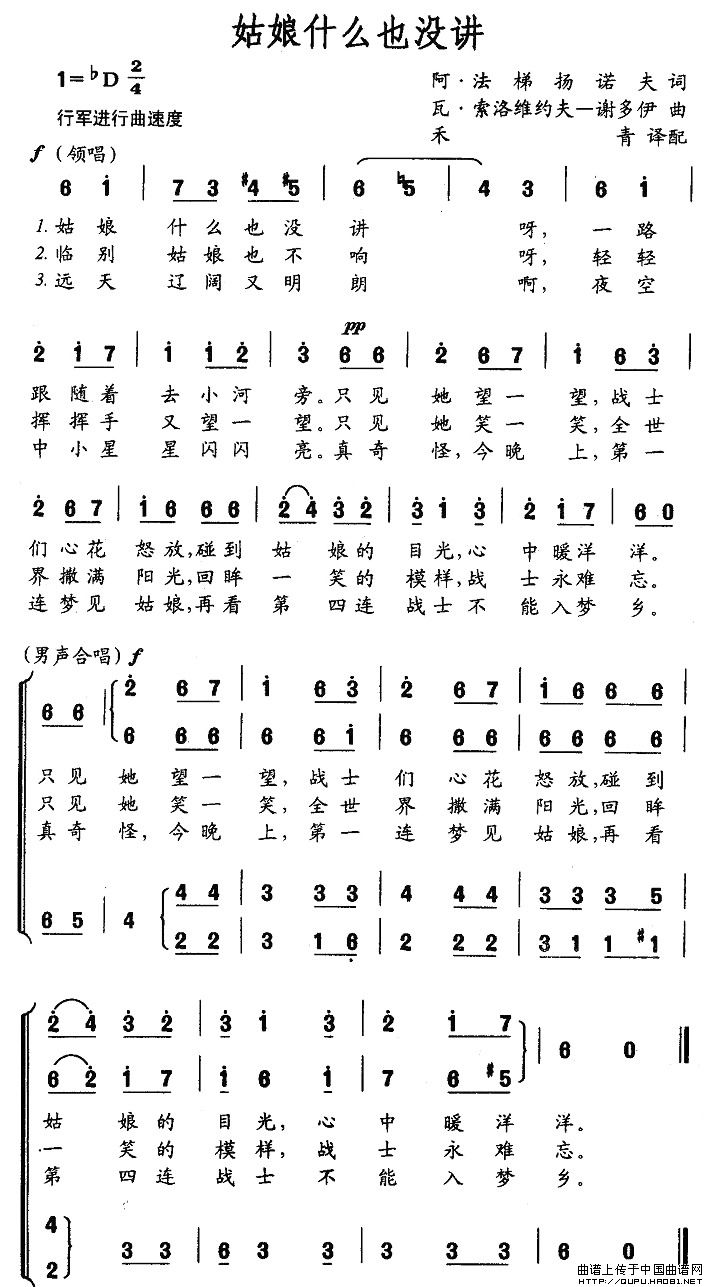 姑娘什么也没讲
1=♭D 2/4
阿·法梯扬诺夫 词
行军进行曲速度
瓦·索洛维约夫—谢多伊 曲
禾青 译配
f (领唱)
6 i̇ | 7 3 #4 #5 | 6 ♮5 | 4 3 | 6 i̇ |
1.姑娘 什么也没 讲 呀, 一路
2.临别 姑娘也不 响 呀, 轻轻
3.远天 辽阔又明 朗 啊, 夜空
pp
2̇ i̇ 7 | i̇ i̇ 2̇ | 3̇ 6 6 | 2̇ 6 7 | i̇ 6 3̇ |
跟随着 去小河 旁。只见 她望一 望,战士
挥挥手 又望一 望。只见 她笑一 笑,全世
中小星 星闪闪 亮。真奇 怪,今晚 上,第一
2̇ 6 7 | i̇ 6 6 6 | 2̇ 4̇ 3̇ 2̇ | 3̇ i̇ 3̇ | 2̇ i̇ 7 | 6 0
们心花 怒放,碰到 姑娘的 目光,心 中暖洋 洋。
界撒满 阳光,回眸 一笑的 模样,战 士永难 忘。
连梦见 姑娘,再看 第四连 战士不 能入梦 乡。
(男声合唱) f
6 6 | 2̇ 6 7 | i̇ 6 3̇ | 2̇ 6 7 | i̇ 6 6 6 |
6 6 6 | 6 6 i̇ | 6 6 6 | 6 6 6 6 |
只见 她望一 望,战士 们心花 怒放,碰到
只见 她笑一 笑,全世 界撒满 阳光,回眸
真奇 怪,今晚 上,第一 连梦见 姑娘,再看
6 5 | 4 4 4 | 3 3 3 | 4 4 4 | 3 3 3 5 |
2 2 | 3 1 6̣ | 2 2 2 | 3 1 1 #1 |
2̇ 4̇ 3̇ 2̇ | 3̇ i̇ 3̇ | 2̇ i̇ 7 | 6 0
6 2̇ i̇ 7 | i̇ 6 i̇ | 7 6 #5
姑娘的 目光,心 中暖洋 洋。
一笑的 模样,战 士永难 忘。
第四连 战士不 能入梦 乡。
4 3 3 | 6 3 3 | 3 3 3 | 6 0
2
曲谱上传于中国曲谱网
HTTP://QUPU.YAOBI.NET